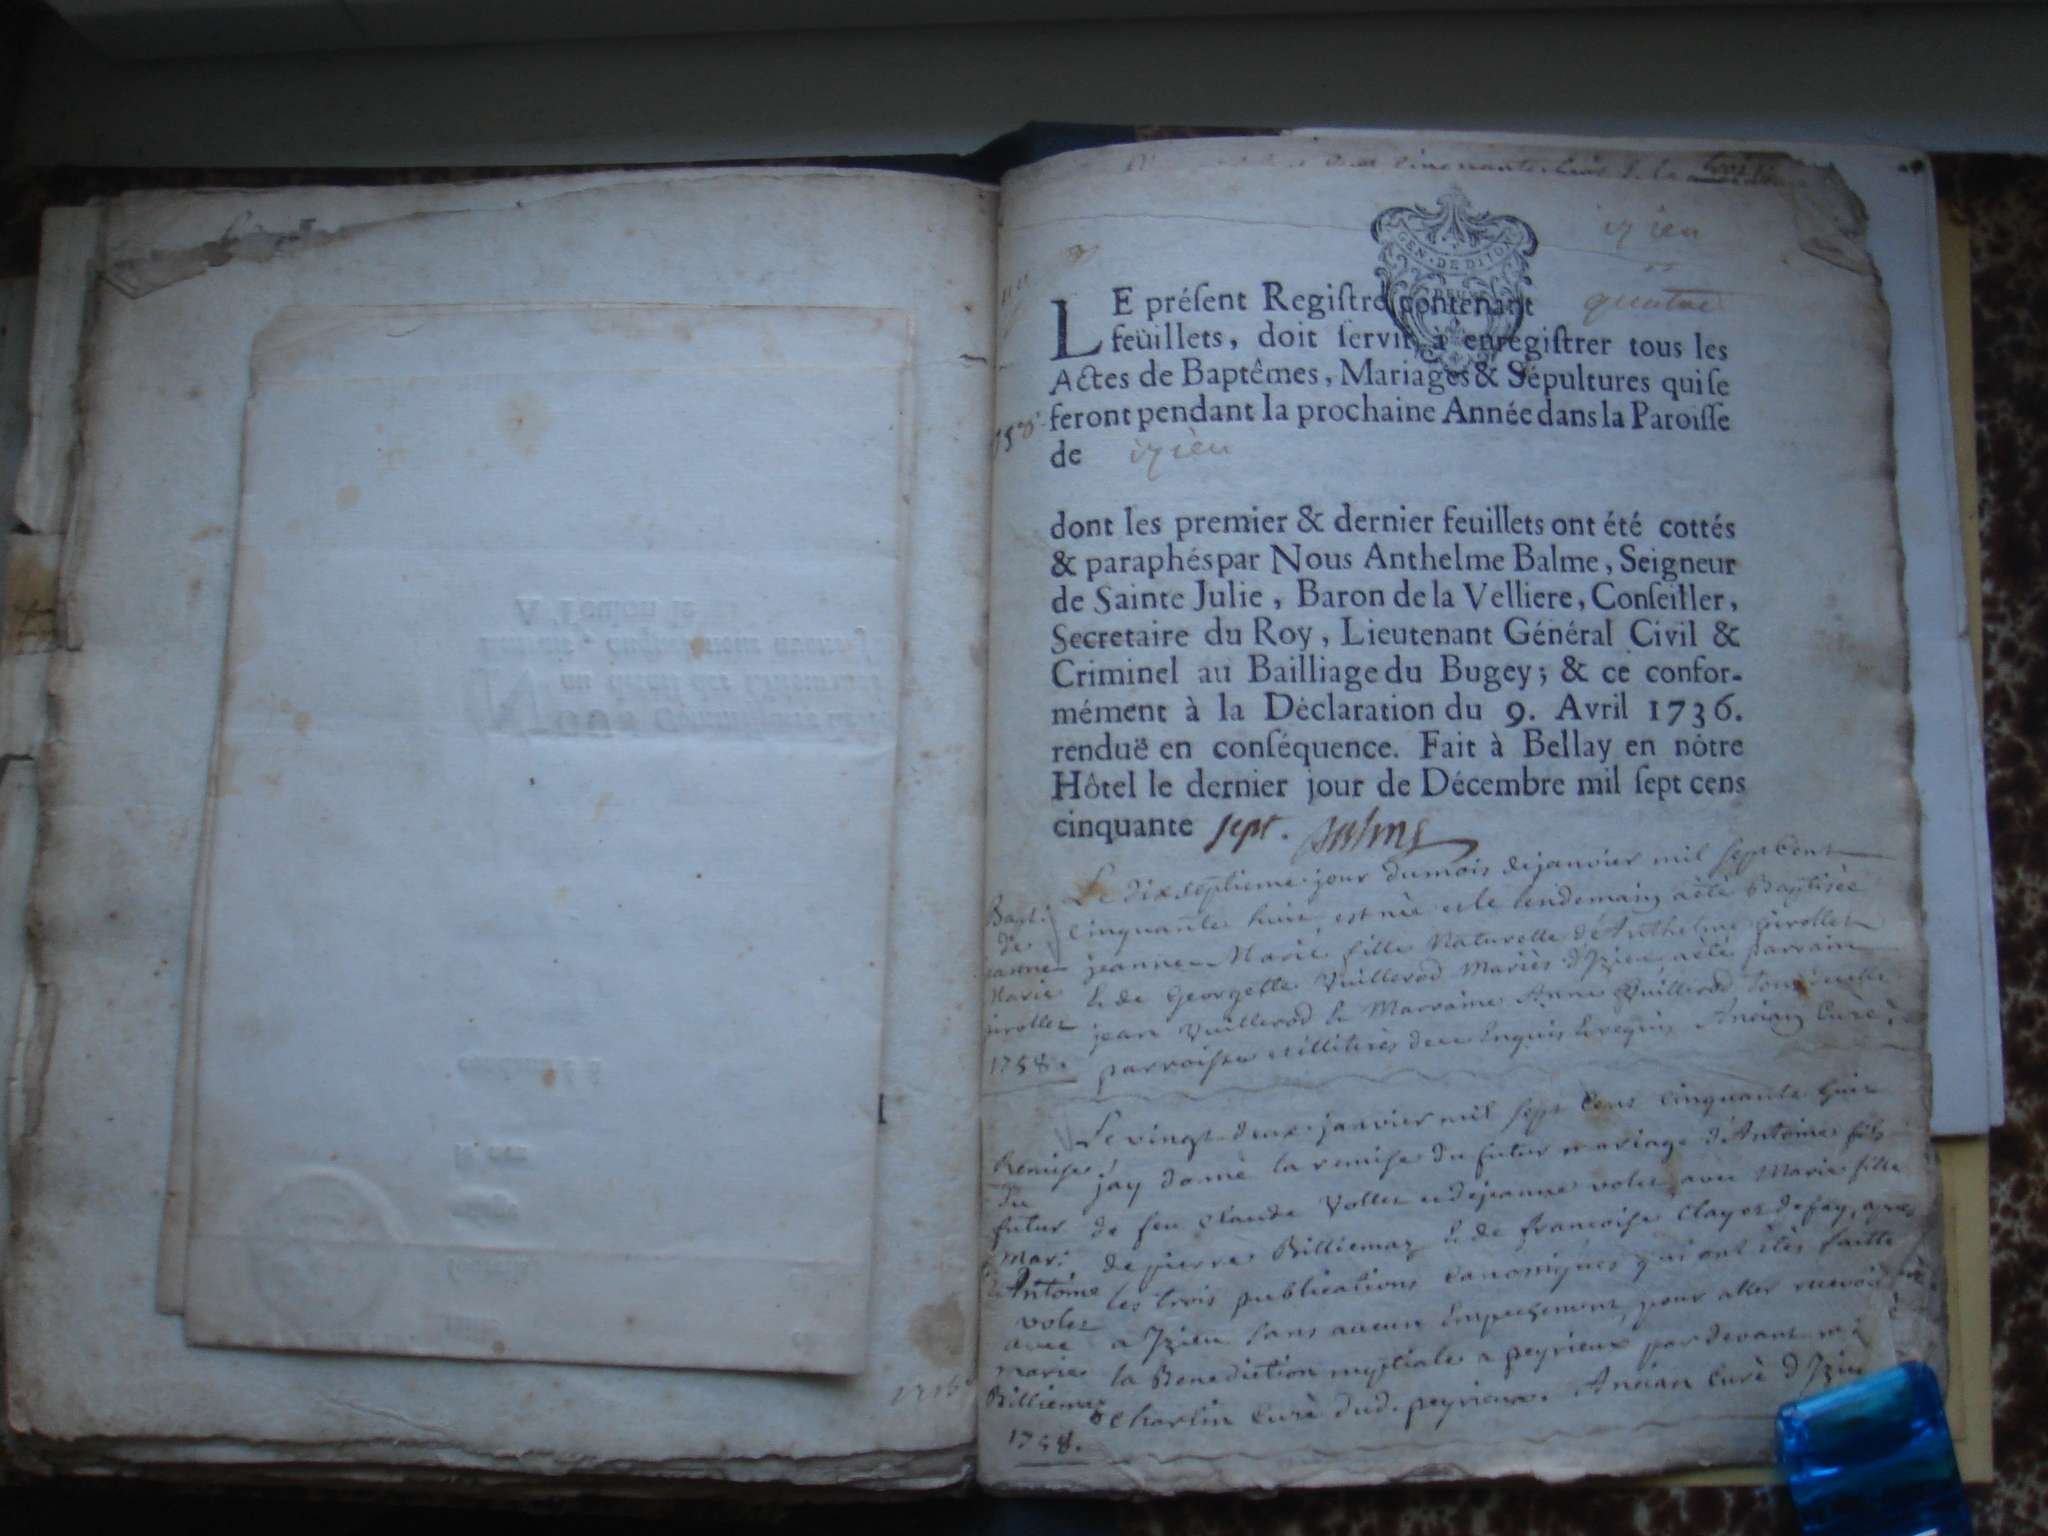 izieu
GEN · DE DIION
quatre
LE préſent Regiſtre contenant
feüillets, doit ſervir à enregiſtrer tous les
Actes de Baptêmes, Mariages & Sépultures qui ſe
feront pendant la prochaine Année dans la Paroiſſe
de izieu
dont les premier & dernier feuillets ont été cottés
& paraphés par Nous Anthelme Balme, Seigneur
de Sainte Julie, Baron de la Velliere, Conſeiller,
Secretaire du Roy, Lieutenant Général Civil &
Criminel au Bailliage du Bugey; & ce confor-
mément à la Déclaration du 9. Avril 1736.
renduë en conſéquence. Fait à Bellay en nôtre
Hôtel le dernier jour de Décembre mil ſept cens
cinquante sept. Balme
Bapt:
de
jeanne
Marie
Girollet
1758.
Le dixseptieme jour du mois de janvier mil sept cent
cinquante huit est née et le lendemain a été Baptisée
jeanne Marie fille Naturelle d'Anthelme Girollet
& de Georgette Vuillerod Mariés d'Izieu a été parrain
jean Vuillerod & Marraine Anne Vuillerod tous de cette
parroisse et illiterés de ce Enquis & requis Ancian Curé
Remise
du
futur
mar:
Antoine
volet
avec
marie
Billiemaz
1758.
Le vingt deux janvier mil sept cens cinquante huit
jay donné la remise du futur mariage d'Antoine fils
de feu Claude Vollet et de jeanne volet avec Marie fille
de pierre Billiemaz & de francoise Clayet de fay, apres
les trois publications canoniques qui ont étés faitte
a Izieu sans aucun Empechement, pour aller recevoir
la Benediction nuptiale a peyrieux par devant
Charlin Curé dud. peyrieux. Ancian Curé d'Izieu